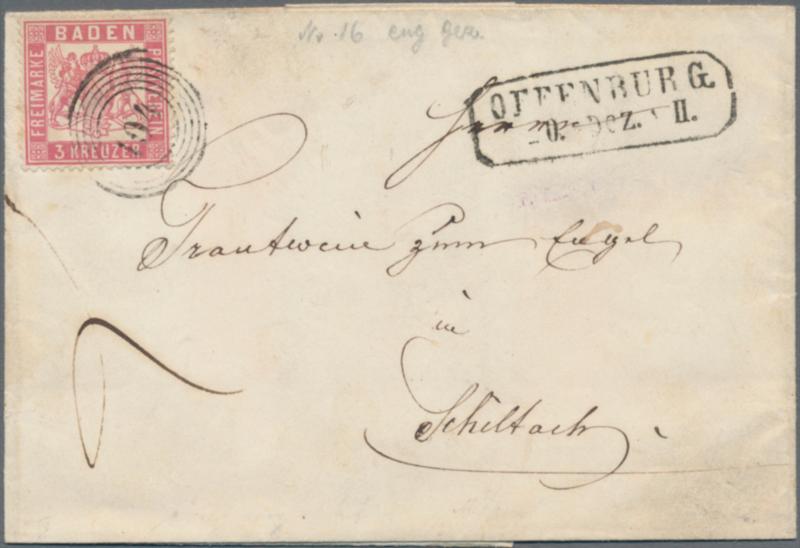 No. 16 eng gez.
BADEN
FREIMARKE
POSTVEREIN
3 KREUZER
104
OFFENBURG
20. Dez. II.
Herrn
Trautwein zum Engel
in
Schiltach